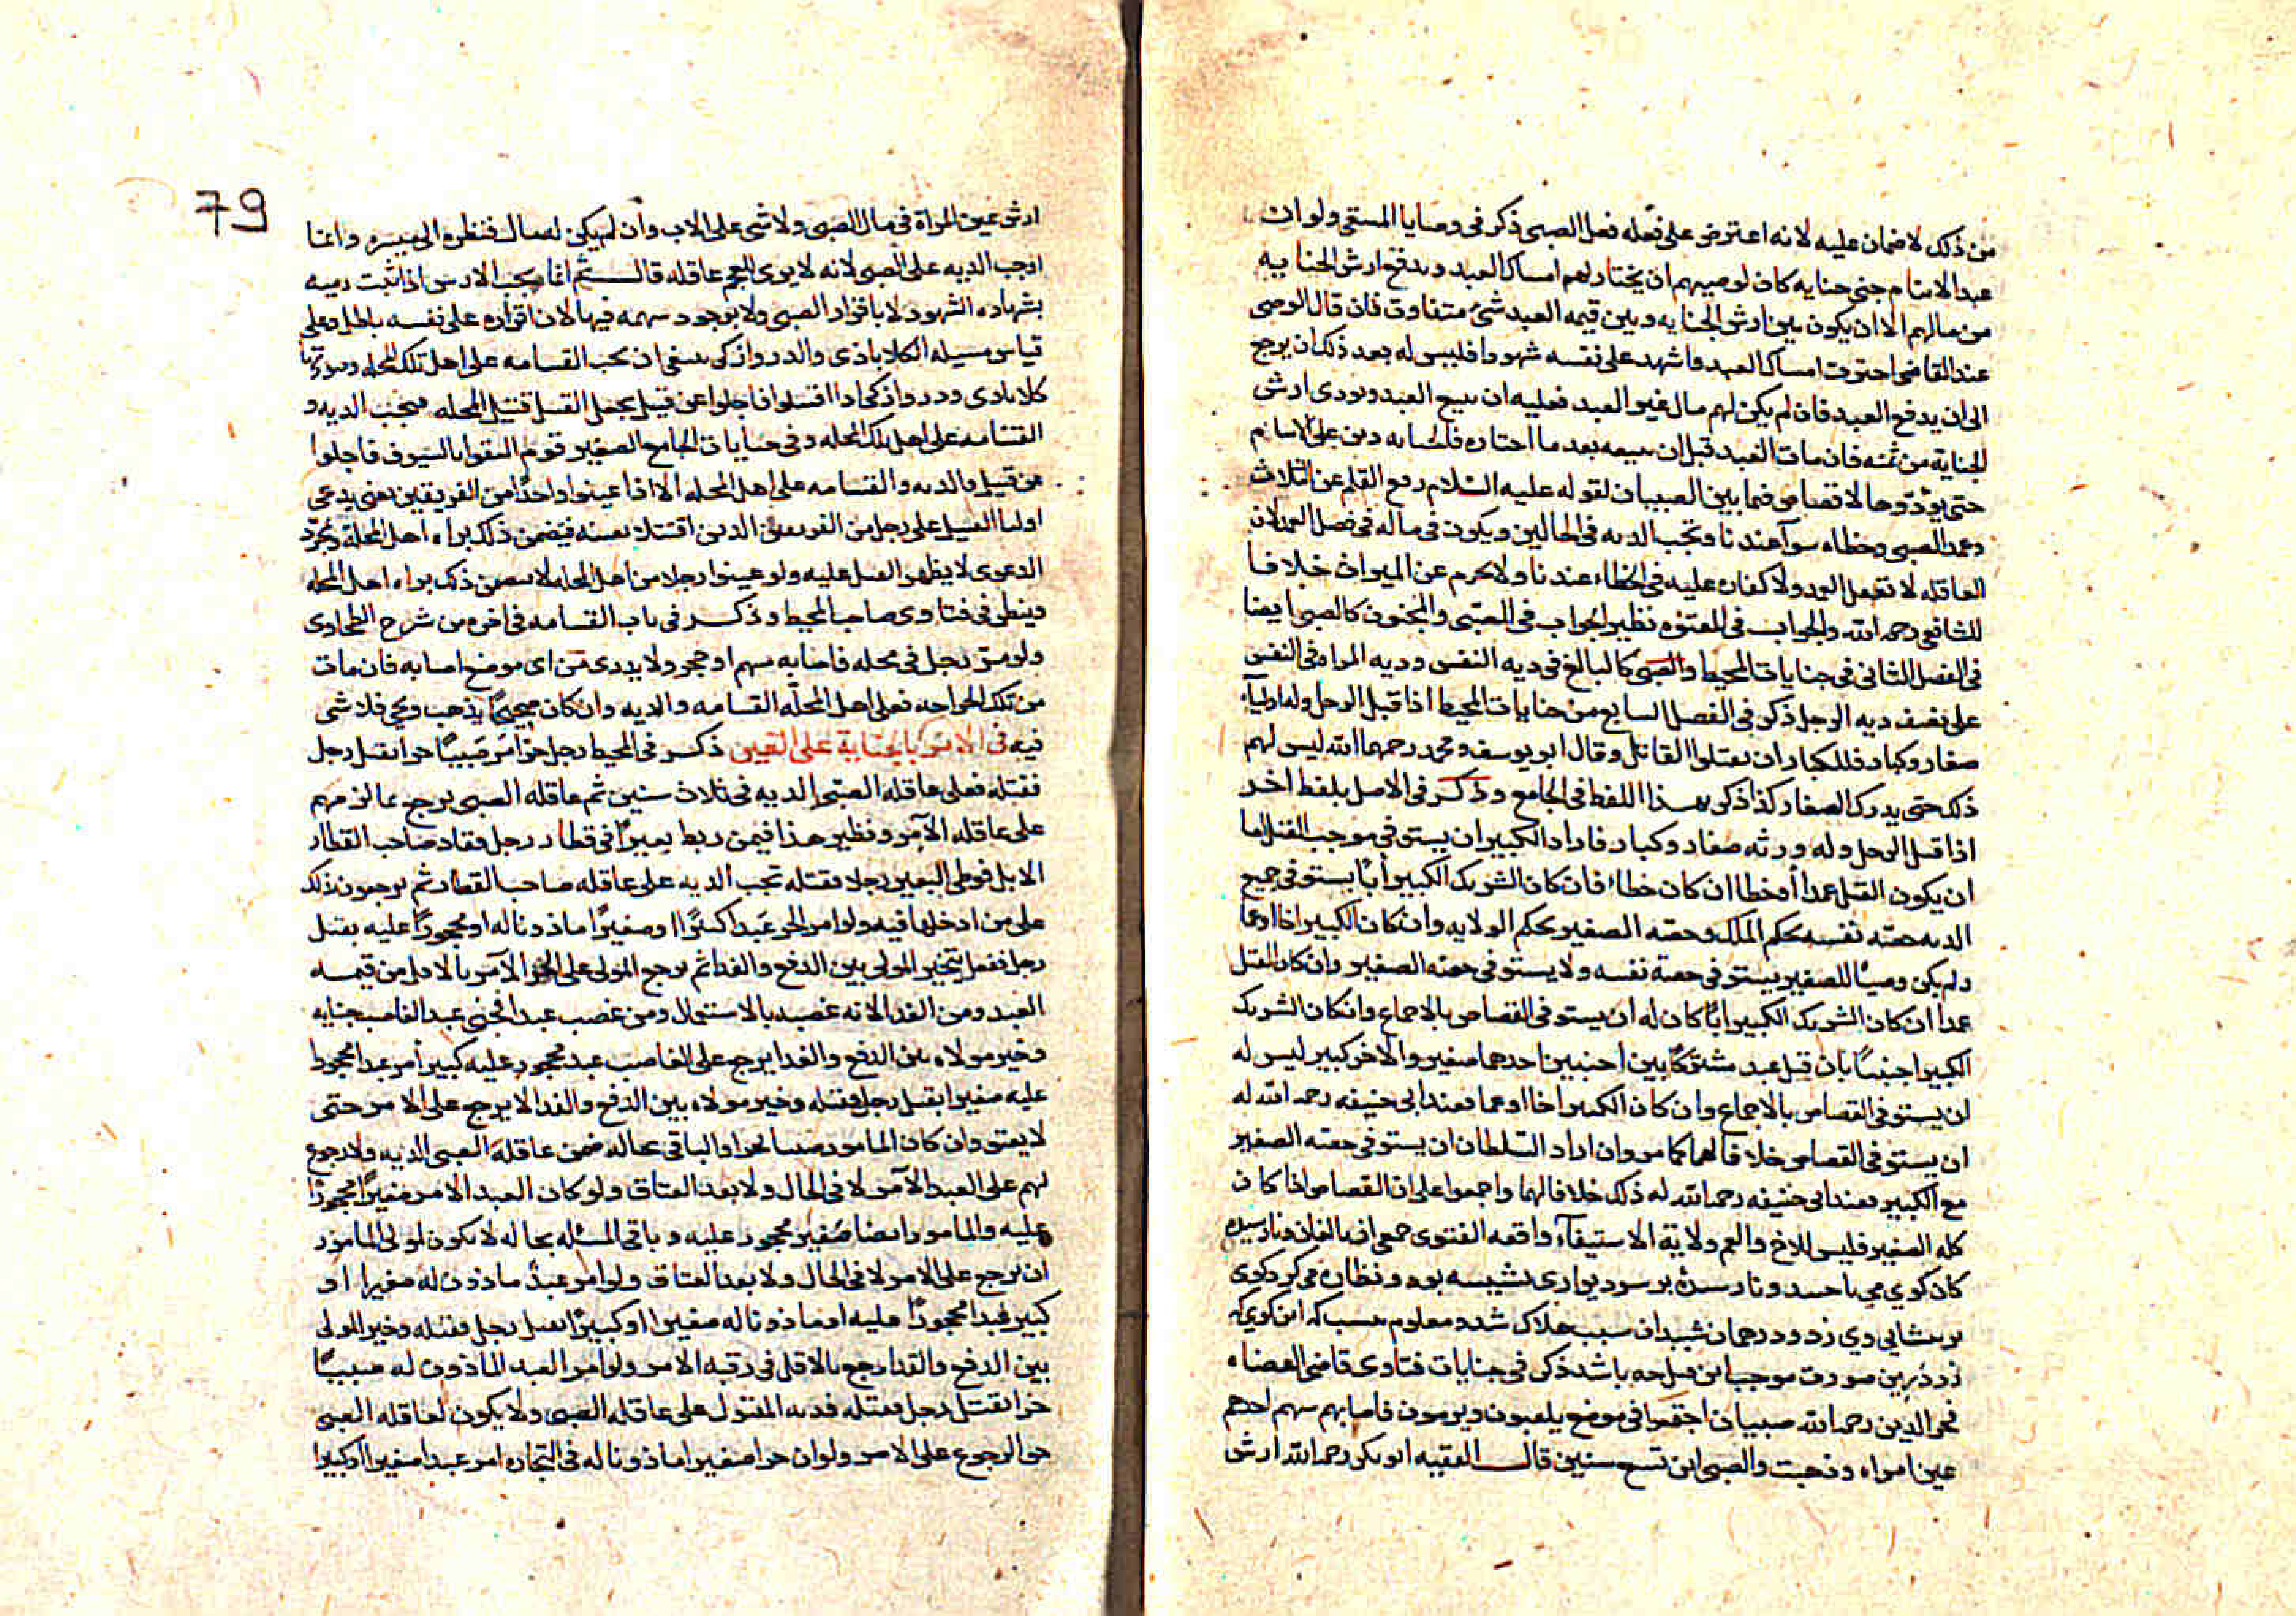 من ذلك لا ضمان عليه لانه اعترض على فعله فعل الصبى ذكر فى وصايا المنتقى ولو ان
عبد الايتام جنى جنايه كان لوصيهم ان يختار لهم امساك العبد ويدفع ارش الجنايه
من مالهم الا ان يكون بين ارش الجنايه وبين قيمه العبد شئ متفاوت فان قال الوصى
عند القاضى اخترت امساك العبد واشهد على نفسه شهودا فليس له بعد ذلك ان يرجع
الى ان يدفع العبد فان لم يكن لهم مال غير العبد فعليه ان يبيع العبد ويودى ارش
الجناية من ثمنه فان مات العبد قبل ان يبيعه بعد ما اختاره فالجنايه دين على الايتام
حتى يؤدوها لا قصاص فيما بين الصبيان لقوله عليه السلام رفع القلم عن الثلاث
وعمد الصبى وخطاه سوآ عندنا وتجب الديه فى الحالين ويكون فى ماله فى فصل العمد لان
العاقله لا تعقل العمد ولا كفاره عليه فى الخطاء عندنا ولا يحرم عن الميراث خلافا
للشافعى رحمه الله والجواب فى المعتوه نظير الجواب فى الصبى والمجنون كالصبى ايضا
فى الفصل الثانى فى جنايات المحيط والصبى كالبالغ فى ديه النفس وديه المراه فى النفس
على نصف ديه الرجل ذكر فى الفصل السابع من جنايات المحيط اذا قتل الرجل وله اوليآء
صغار وكبار فللكبار ان يقتلوا القاتل وقال ابو يوسف ومحمد رحمهما الله ليس لهم
ذلك حتى يدرك الصغار كذا ذكر بهذا اللفظ فى الجامع وذكر فى الاصل بلفظ اخر
اذا قتل الرجل وله ورثه صغار وكبار فاراد الكبير ان يستوفى موجب القتل اما
ان يكون القتل عمدا أو خطا ان كان خطاء فان كان الشريك الكبير أبا يستوفى جميع
الديه حصه نفسه بحكم الملك وحصه الصغير بحكم الولايه وان كان الكبير اخا اوعما
ولم يكن وصيا للصغير يستوفى حصة نفسه ولا يستوفى حصه الصغير وان كان القتل
عمدا ان كان الشريك الكبير ابا كان له ان يستوفى القصاص بالاجماع وان كان الشريك
الكبير اجنبيا بان قتل عبد مشتركا بين اجنبين احدهما صغير والاخر كبير ليس له
ان يستوفى القصاص بالاجماع وان كان الكبير اخا اوعما فعند ابى حنيفه رحمه الله له
ان يستوفى القصاص خلافا لهما كما مر وان اراد السلطان ان يستوفى حصه الصغير
مع الكبير فعند ابى حنيفه رحمه الله له ذلك خلافا لهما واجمعوا على ان القصاص اذا كان
كله للصغير فليس للاخ والعم ولاية الاستيفآء واقعه الفتوى
فخر الدين رحمه الله صبيان اجتمعوا فى موضع يلعبون ويرمون فاصابهم سهم احدهم
عين امراه وذهبت والصبى ابن تسع سنين قال الفقيه ابو بكر رحمه الله ارش
79
ارش عين المراة فى مال الصبى ولا شئ على الاب وان لم يكن له مال فنظره الى ميسره وانما
اوجب الديه على الصبى لانه لا يرى للعجم عاقله قال ثم انما يجب الارش اذا ثبت رميه
بشهاده الشهود لا باقرار الصبى ولا بوجود سهمه فيها لان اقراره على نفسه باطل وعلى
قياس مسيله الكلاباذى والدروازكى ينبغى ان تجب القسامه على اهل تلك المحله
كلابادى ودروازكى اذا اقتتلوا فاجلوا عن قتيل يجعل القتيل قتيل المحله فيجب الديه و
القسامه على اهل تلك المحله وفى جنايات الجامع الصغير قوم التقوا بالسيوف فاجلوا
عن قتيل والديه والقسامه على اهل المحله الا اذا عينوا واحدا من الفريقين يعنى يدعى
اوليا القتيل على رجل من الفريقين الذين اقتتلا بعينه فيضمن ذلك براه اهل المحلة وبمجرد
الدعوى لا يظهر القتل عليه ولو عينوا رجلا من اهل المحله لا يتضمن ذلك براه اهل المحله
وينظر فى فتاوى صاحب المحيط وذكر فى باب القسامه فى اخره من شرح الطحاوى
ولو مر رجل فى محله فاصابه سهم او حجر ولا يدرى من اى موضع اصابه فان مات
من تلك الجراحه فعلى اهل المحلّه القسامه والديه وان كان صحيحا يذهب ويجى فلا شى
فيه فى الامر بالجناية على الغير ذكر فى المحيط رجل حر أمر صبيا حرا بقتل رجل
فقتله فعلى عاقله الصبى الديه فى ثلاث سنين ثم عاقله الصبى يرجع بما لزمهم
على عاقله الآمر ونظير هذا فيمن ربط بعيرا فى قطار رجل فقاد صاحب القطار
الابل فوطى البعير رجلا فقتله تجب الديه على عاقله صاحب القطار ثم يرجعون بذلك
على من ادخلها فيه ولو امر الحر عبدا كبيرا او صغيرا ماذونا له او محجورا عليه بقتل
رجل ففعل يتخير المولى بين الدفع والفدا ثم يرجع المولى على الحر الآمر بالاقل من قيمه
العبد ومن الفدا لانه غصبه بالاستعمال ومن غصب عبدا فجنى عبد الغاصب جنايه
وخير مولاه بين الدفع والفدا يرجع على الغاصب عبد محجور عليه كبير أمر عبدا محجورا
عليه صغيرا بقتل رجل فقتله وخير مولاه بين الدفع والفدا لا يرجع على الامر حتى
لا يعتق وان كان المامور صبيا حرا والباقى بحاله ضمن عاقله الصبى الديه ولا رجوع
لهم على العبد الآمر لا فى الحال ولا بعد العتاق ولو كان العبد الامر صغيرا محجورا
عليه والمامور ايضا صغير محجور عليه وباقى المسئله بحاله لا يكون لمولى المامور
ان يرجع على الامر لا فى الحال ولا بعد العتاق ولو امر عبد ماذون له صغير او
كبير عبدا محجورا عليه او ماذونا له صغيرا او كبيرا بقتل رجل فقتله وخير المولى
بين الدفع والفدا رجع بالاقل فى رقبه الامر ولو امر العبد الماذون له صبيا
حرا بقتل رجل فقتله فديه المقتول على عاقله الصبى ولا يكون لعاقله الصبى
حق الرجوع على الامر ولو ان حرا صغيرا ماذونا له فى التجاره امر عبدا صغيرا او كبيرا